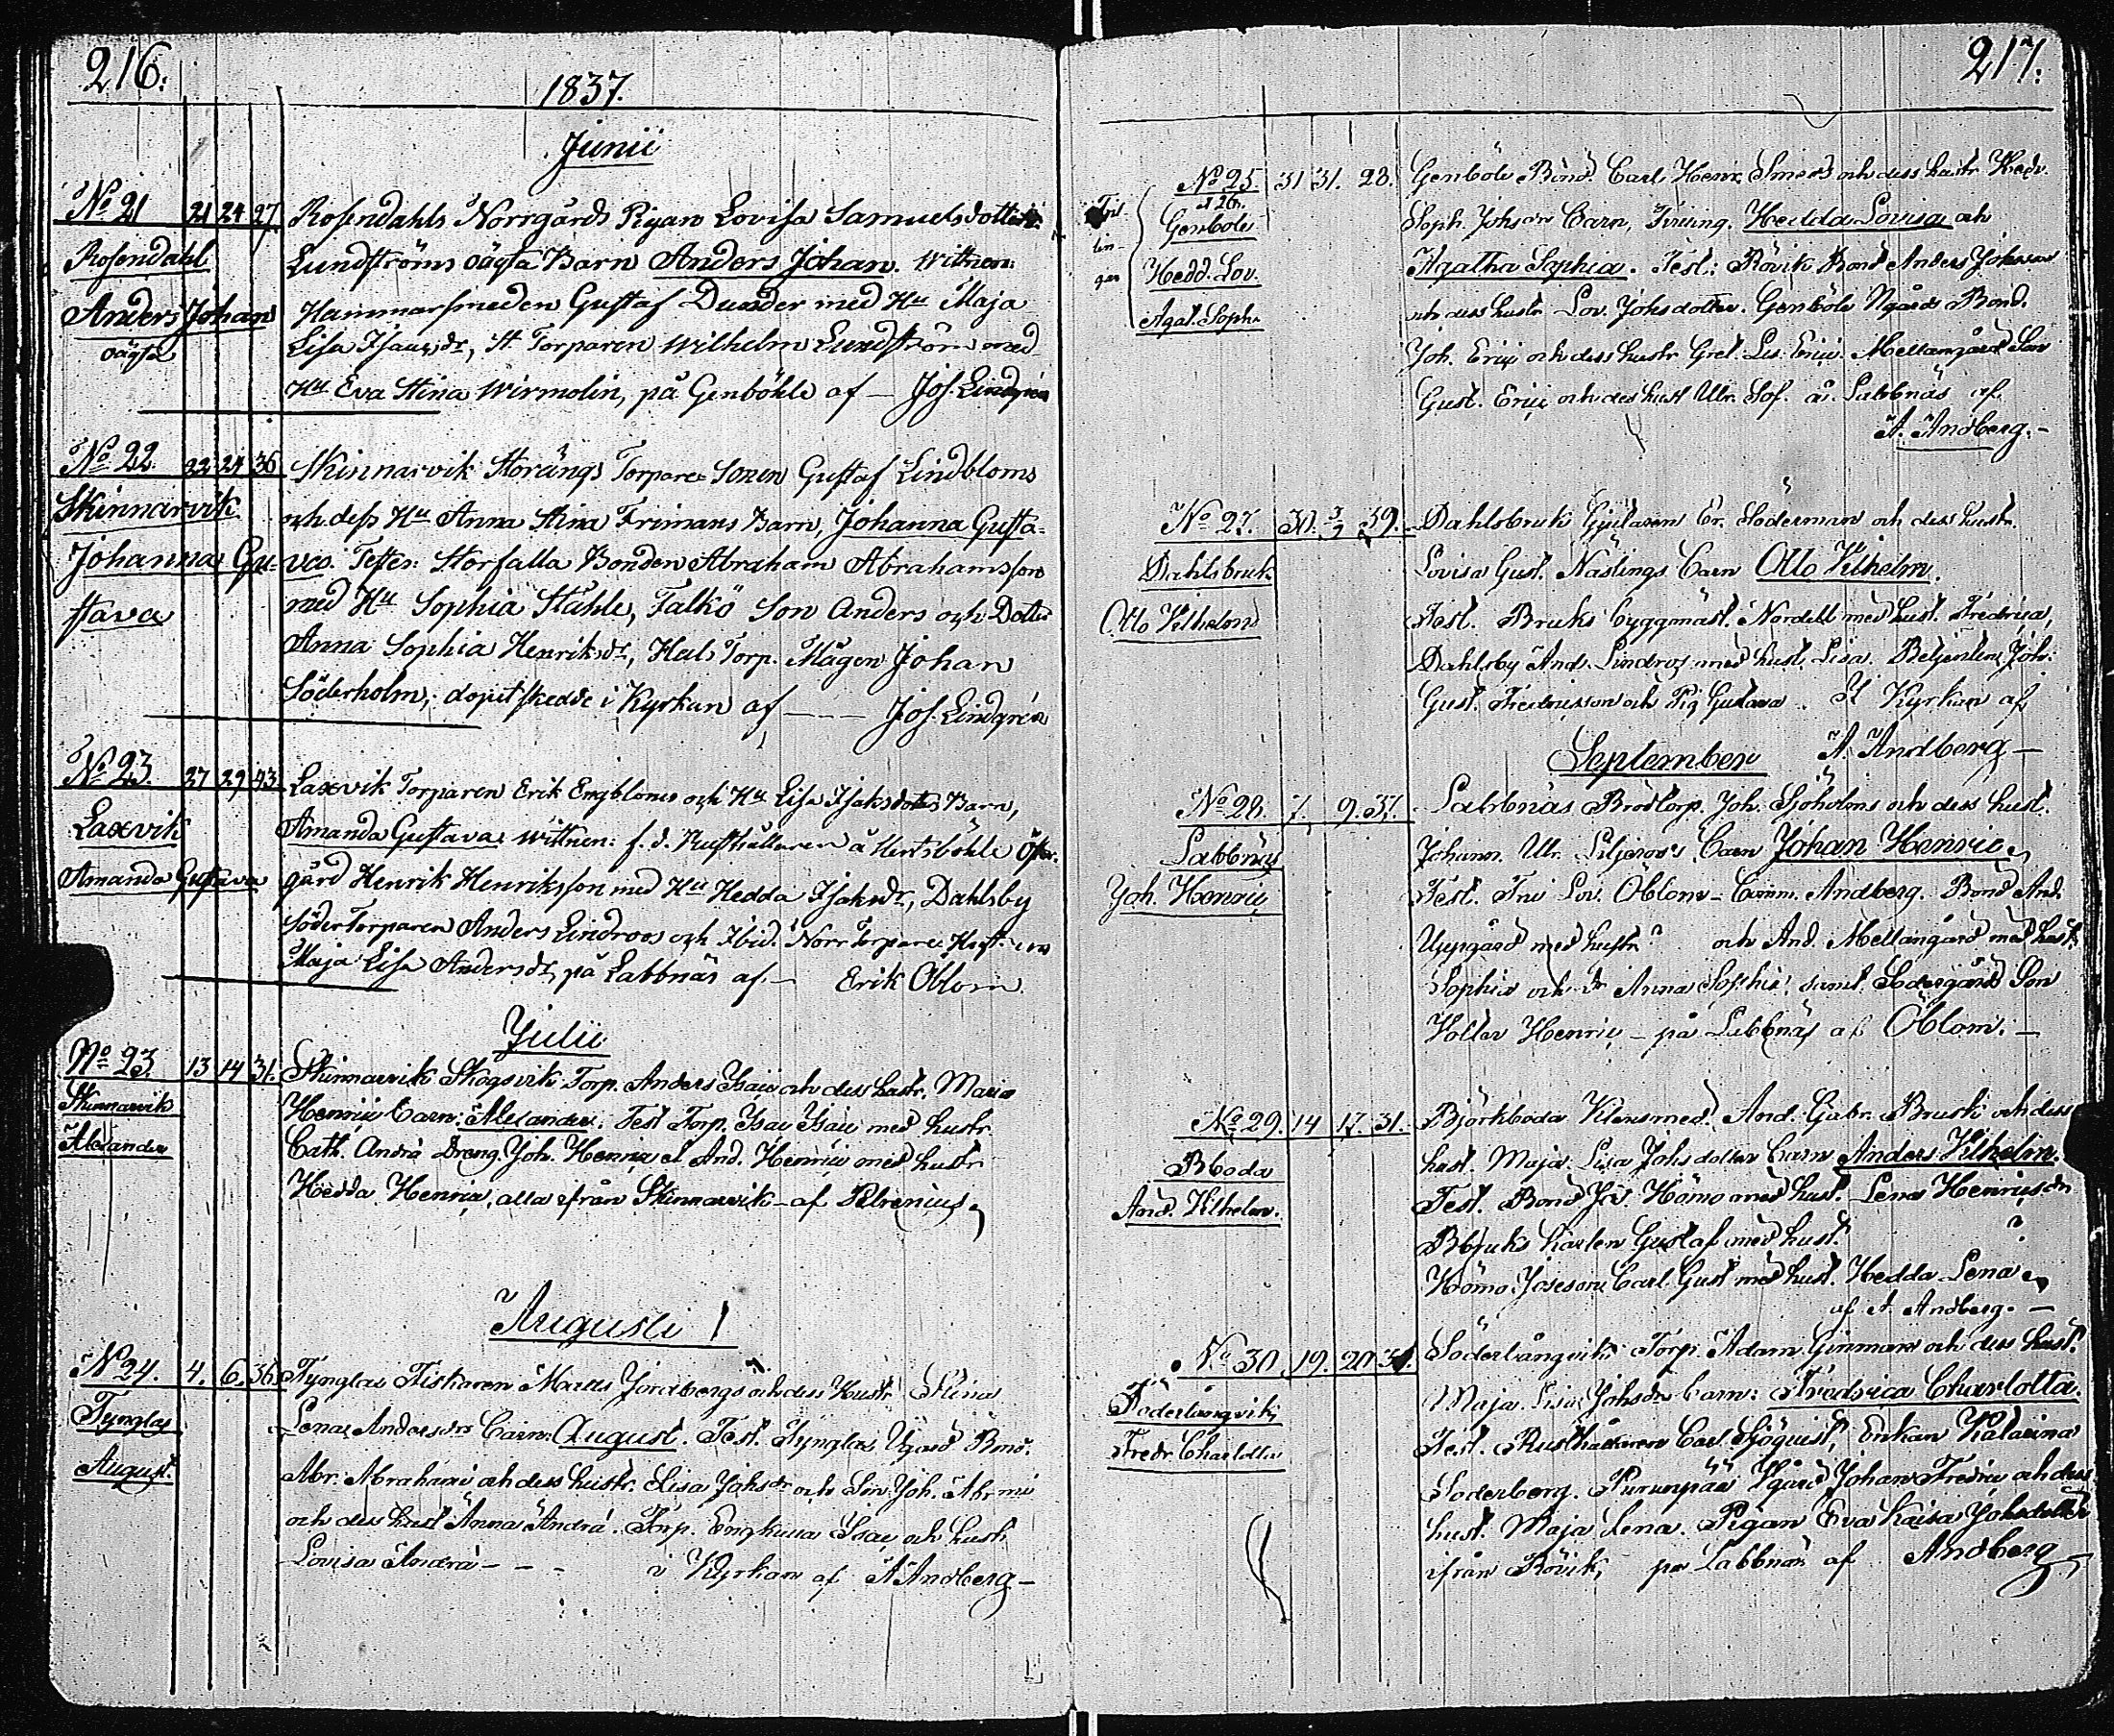 216.
1837.
Junii
No 21 21 24 27 Rosendahls Norrgårds Pigan Lovisa Samuelsdotter
Rosendahl Lundströms oägta Barn Anders Johan. Wittnen:
Anders Johan Hammarsmeden Gustaf Dunder med Hu Maja
oägta Lisa Isaacsdr, St Torparen Wilhelm Lundström med
Hu Eva Stina Wirmolin, på Genböhle af — Jos. Lindgrén
No 22 22 24 36 Skinnarvik Storängs Torpare Sonen Gustaf Lindbloms
Skinnarvik och dess Hu Anna Stina Frimans Barn, Johanna Gusta-
Johanna Gu- va. Testes: Storfalla Bonden Abraham Abrahamsson
stava med Hu Sophia Ståhle, Falkö Son Anders och Dotter
Anna Sophia Henriksdr, Torp. Mågen Johan
Söderholm; doput skedde i Kyrkan af — — Jos. Lindgrén
No 23. 27 29 43 Laxvik Torparen Erik Engbloms och Hu Lisa Isaksdotters Barn,
Laxvik Amanda Gustava. Wittnen: f. d. Rusthållaren å Hertsböhle Öster-
Amanda Gustava gård Henrik Henriksson med Hu Hedda Isaksdr, Dahlsby
Söder Torparen Anders Lindroos och Ibid. Norr Torpare
Maja Lisa Andersdr, på Labbnäs af — Erik Oblom.
Julii
No 23 13 14 31. Skinnarvik Skogsvik Torp. Anders Isaic och dess hustr. Maria
Skinnarvik Henrici Barn: Alexander. Test Torp. Isac Isaic med hustr.
Alexander Cath. Andrä Dreng. Joh. Henric et And. Henric med hustr
Hedda Henric, alla ifrån Skinnarvik — af Petrenius
Augusti
No 24. 4. 6. 36 Tynglax Fiskaren Jordbergs och dess Hustr Stina
Tynglax Lena Andersdrs Barn: August. Test. Tynglax Ugård Bond.
August. Abr. Abrahami och dess hustr. Lisa Johsdr och Son Joh.
och dess hust Anna Andrä. Torp. Isac och hustr
Lovisa Andrä — — — i Kyrkan af A Andberg —
217.
No 25 31 31. 28. Genböle Bond. Carl Henr. och dess hustr Hedv.
No 26. Soph. Johsdrs Barn, Tvining. Hedda Lovisa och
Tvil- Genböle Agatha Sophia. Test: Rövik Bond Anders Johnson
lin- Hedd. Lov. och dess hustr Lov. Johsdotter. Genböle Ngårds Bond.
gar Agat. Soph. Joh. Erici och dess hustr Gret. Lis. Erici. Mellangård Son
Gust. Erici och des hust Ulr. Sof. å Labbnäs af
A. Andberg. —
No 27. 30. 3/9 39. Dahlsbruk Gjutaren Er. Söderman och dess hustr.
Dahlsbruk Lovisa Gust. Näslings Barn Otto Vilhelm.
Otto Vilhelm Test. Bruks byggmäst. Nordell med hust. Fredrica,
Dahlsby And. Lindros med hust. Lisa. Betjenten Joh.
Gust. Fredricsson och Pig Gustava. I Kyrkan af
September A. Andberg —
No 28. 7. 9. 37. Labbnäs Torp. Joh. Sjöholms och dess hust.
Labbnäs Johann. Ulr. Liljeroos Barn Johan Henric
Joh. Henric Test. Fru Lov. Oblom — Comm. Andberg. Bond And.
Uppgård med hustr ? och And. Mellangård med hust.
Sophia och Dr Anna Sophia, samt Södergård Son
Henric — på Labbnäs af Öblom. —
No 29. 14 17. 31. Björkboda Klensmed. And. Gabr. Brusk och dess
Bboda hust. Maja Lisa Johsdotter Barn Anders Vilhelm.
And. Vilhelm. Test. Bond Hömo med hust. Lena Henricsdr
Bbruks Karlen Gustaf med hust. ?
Hömo Carl Gust med hust. Hedda Lena
af A. Andberg. —
No 30 19. 20 Söderlångvik Torp. Adam Ginman och dess hust.
Söderlångvik Maja Lisa Johsdr Barn: Fredrica Charlotta.
Fredr. Charlotta Test. Rusthållaren Carl Sjöquist, Enkan Katarina
Söderberg. Purunpää Ygård Johan Fredric och dess
hust. Maja Lena. Pigan Eva Kaisa Johsdotter
ifrån Rövik, på Labbnäs af Andberg —